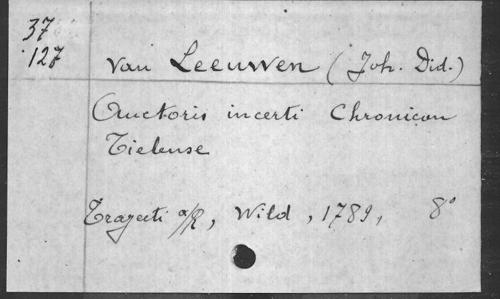 37
127
van Leeuwen (Joh. Did.)
Auctoris incerti Chronicon
Tielense
Trajecti a/R, Wild, 1789, 8°